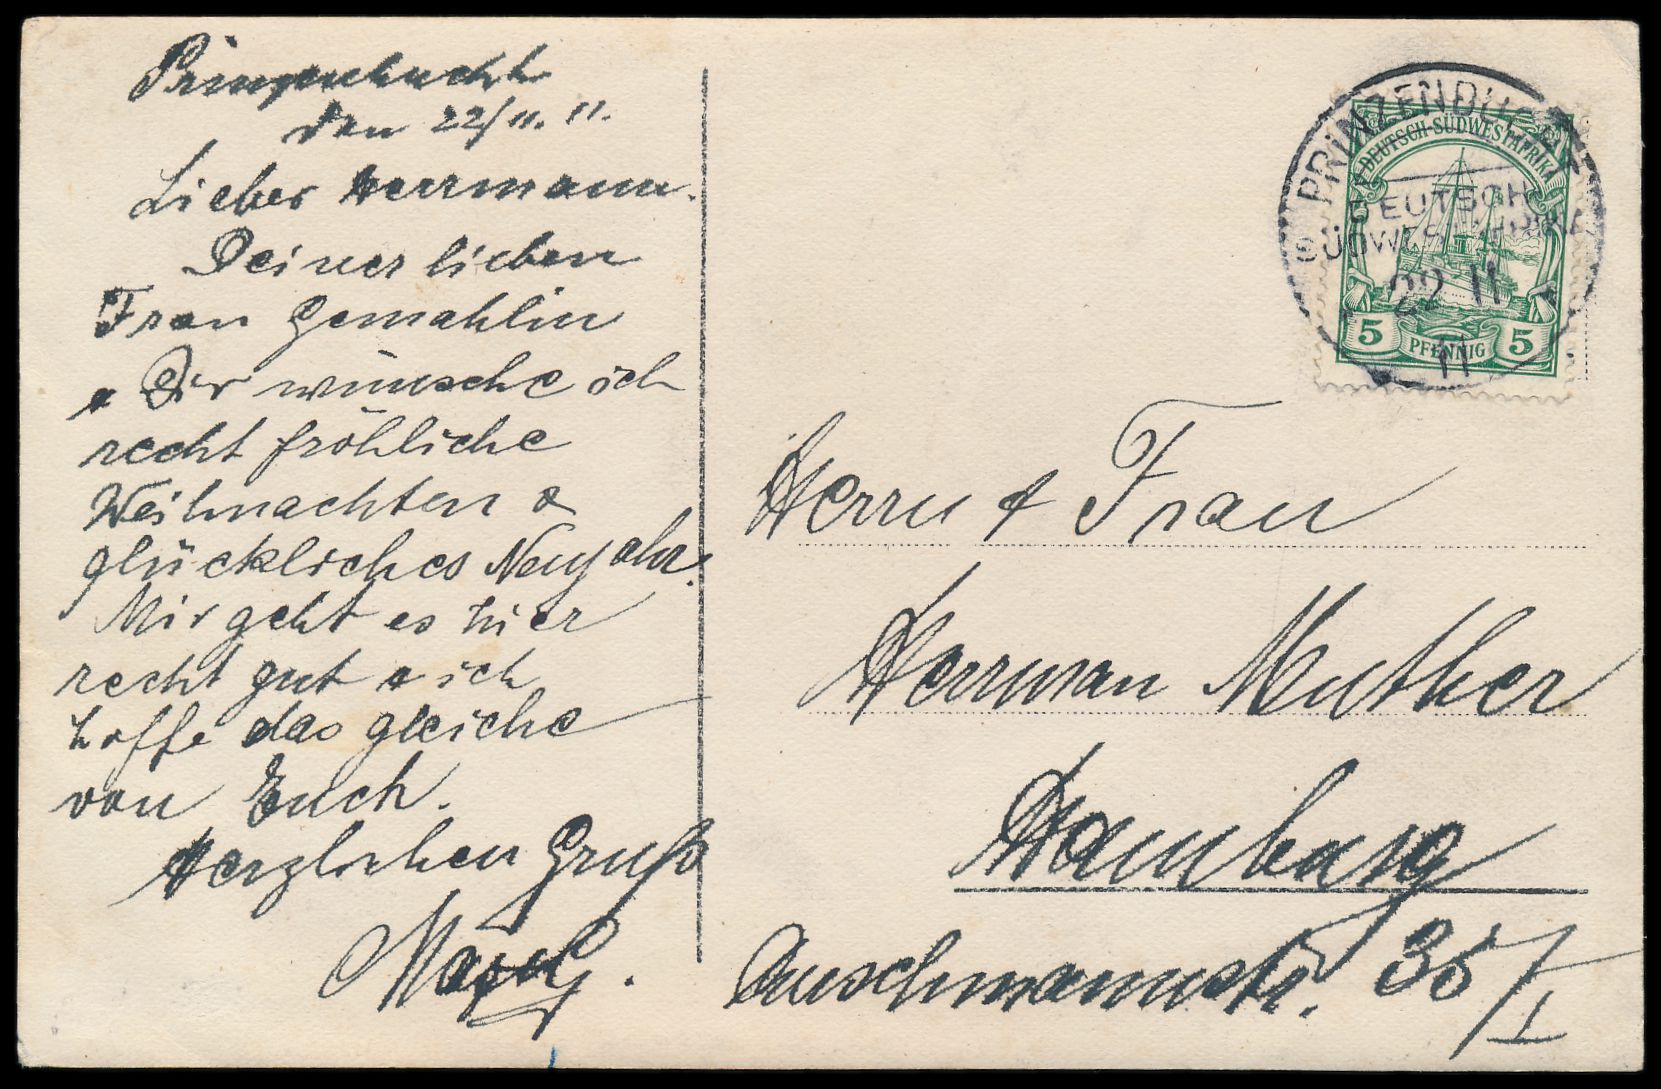 Prinzenbucht
den 22/11. 11.
Lieber Herrmann.
Deiner lieben
Frau Gemahlin
& Dir wünsche ich
recht fröhliche
Weihnachten &
glückliches Neujahr.
Mir geht es hier
recht gut & ich
hoffe das gleiche
von Euch.
Herzlichen Gruß
PRINZENBUCHT
DEUTSCH
SÜDWESTAFRIKA
22 11
11
DEUTSCH-SÜDWESTAFRIKA
5 PFENNIG 5
Herrn & Frau
Herrman Muther
Hamburg
35/I